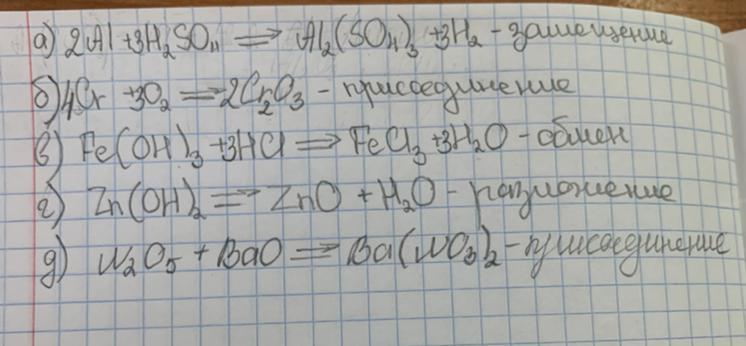 а) 2Al +3H₂SO₄ ⟹ Al₂(SO₄)₃ +3H₂ - замещение
б) 4Cr +3O₂ ⟹ 2Cr₂O₃ - присоединение
в) Fe(OH)₃ +3HCl ⟹ FeCl₃ +3H₂O - обмен
г) Zn(OH)₂ ⟹ ZnO + H₂O - разложение
д) N₂O₅ + BaO ⟹ Ba(NO₃)₂ - присоединение